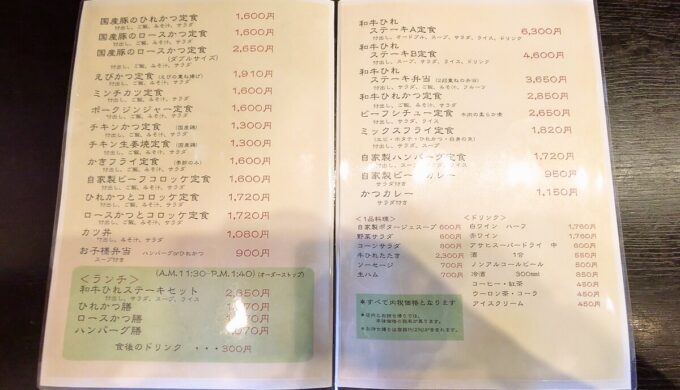 国産豚のひれかつ定食 1,600円
付出し、ご飯、みそ汁、サラダ
国産豚のロースかつ定食 1,600円
付出し、ご飯、みそ汁、サラダ
国産豚のロースかつ定食 2,650円
付出し、ご飯、みそ汁、サラダ (ダブルサイズ)
えびかつ定食 (えびの重ね揚げ) 1,910円
付出し、ご飯、みそ汁、サラダ
ミンチカツ定食 1,600円
付出し、ご飯、みそ汁、サラダ
ポークジンジャー定食 1,600円
付出し、ご飯、みそ汁、サラダ
チキンかつ定食 (国産鶏) 1,300円
付出し、ご飯、みそ汁、サラダ
チキン生姜焼定食 (国産鶏) 1,300円
付出し、ご飯、みそ汁、サラダ
かきフライ定食 (季節のみ) 1,600円
付出し、ご飯、みそ汁、サラダ
自家製ビーフコロッケ定食 1,600円
付出し、ご飯、みそ汁、サラダ
ひれかつとコロッケ定食 1,720円
付出し、ご飯、みそ汁、サラダ
ロースかつとコロッケ定食 1,720円
付出し、ご飯、みそ汁、サラダ
カツ丼 1,080円
付出し、みそ汁、サラダ
お子様弁当 ハンバーグorひれかつ 900円
スープ付き
＜ランチ＞ (A.M.11:30-P.M.1:40) (オーダーストップ)
和牛ひれステーキセット 2,850円
付出し、サラダ、スープ、ライス
ひれかつ膳
ロースかつ膳
ハンバーグ膳
食後のドリンク ・・・300円
和牛ひれ
ステーキA定食 6,300円
付出し、オードブル、スープ、サラダ、ライス、ドリンク
和牛ひれ
ステーキB定食 4,600円
付出し、スープ、サラダ、ライス、ドリンク
和牛ひれ
ステーキ弁当 (2段重ねの弁当) 3,650円
付出し、サラダ、ご飯、みそ汁、フルーツ
和牛ひれかつ定食 2,850円
付出し、ご飯、みそ汁、サラダ
ビーフシチュー定食 牛肉の柔らか煮 2,650円
付出し、サラダ、ライス
ミックスフライ定食 1,820円
(エビ・ホタテ・ひれかつ・白身の魚)
付出し、サラダ、スープ
自家製ハンバーグ定食 1,720円
付出し、スープ、サラダ、ライス
自家製ビーフカレー 950円
サラダ付き
かつカレー 1,150円
サラダ付き
＜1品料理＞
自家製ポタージュスープ 600円
野菜サラダ 600円
コーンサラダ 800円
牛ひれたたき 2,300円
ソーセージ 700円
生ハム 700円
＊すべて内税価格となります
＜ドリンク＞
白ワイン ハーフ 1,760円
赤ワイン 1,760円
アサヒスーパードライ 中
酒 1合 550円
ノンアルコールビール
冷酒 300ml
コーヒー・紅茶 450円
ウーロン茶・コーラ
アイスクリーム